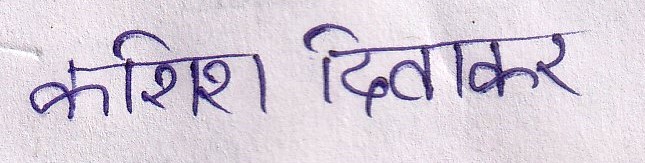 कशिश दिवाकर